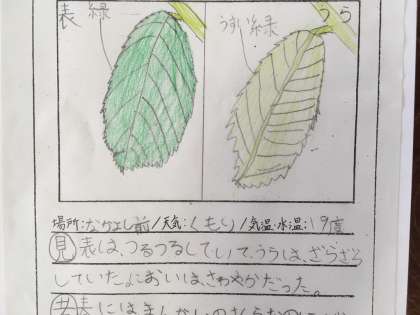 表 緑
うすい緑
うら
場所:なかよし前/天気:くもり/気温・水温:19度
見 表は、つるつるしていて、うらは、ざらざら
していたよ。においは、さわやかだった。
表にはまん